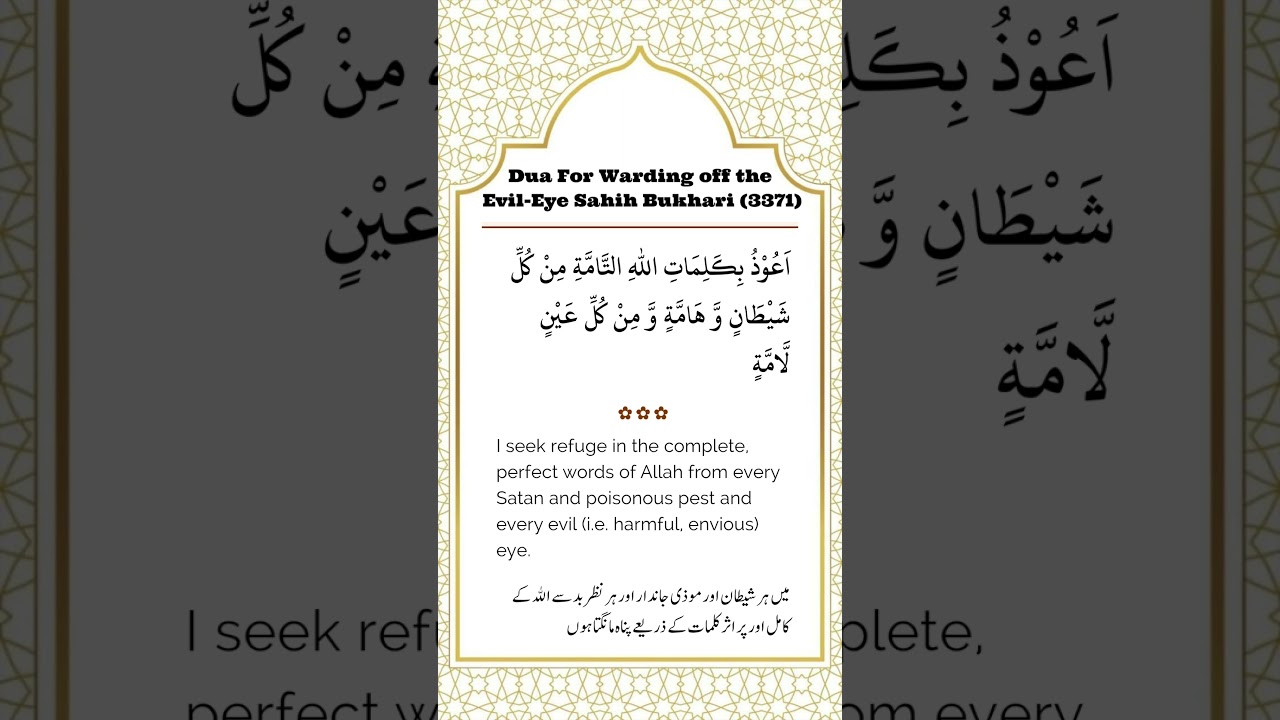 Dua For Warding off the
Evil-Eye Sahih Bukhari (3371)
اَعُوْذُ بِكَلِمَاتِ اللهِ التَّامَّةِ مِنْ كُلِّ
شَيْطَانٍ وَّ هَامَّةٍ وَّ مِنْ كُلِّ عَيْنٍ
لَّامَّةٍ
I seek refuge in the complete,
perfect words of Allah from every
Satan and poisonous pest and
every evil (i.e. harmful, envious)
eye.
میں ہر شیطان اور موذی جاندار اور ہر نظر بد سے اللہ کے
کامل اور پر اثر کلمات کے ذریعے پناہ مانگتا ہوں